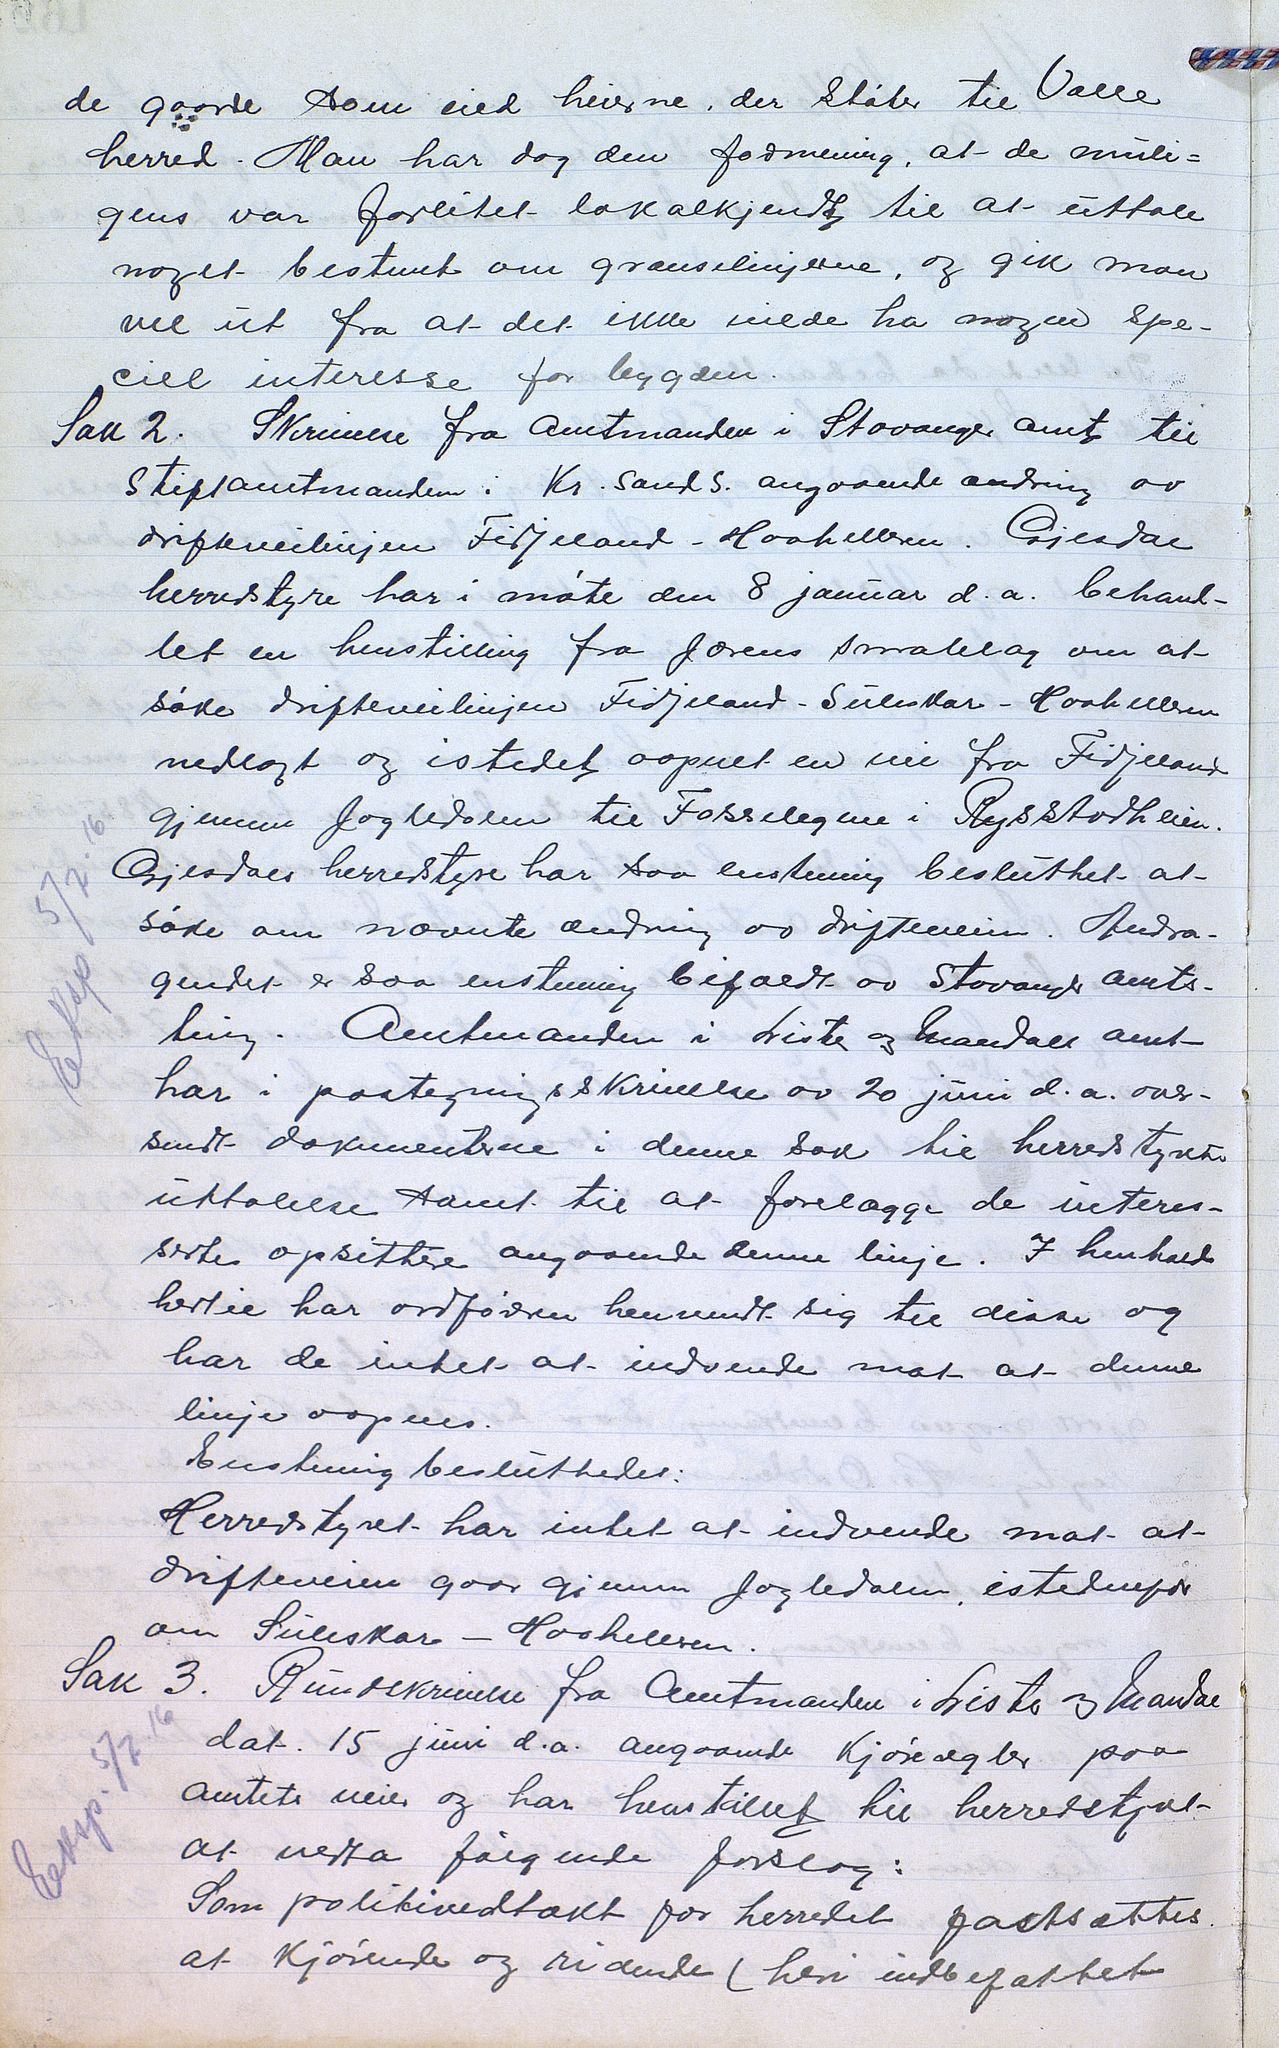 de gaarde som eied heierne, der støter til Valle
herred. Man har dog den formening, at de muli=
gens var forlitet lokalkjendt til at uttale
noget bestemt om grænselinjerne, og gik man
vel ut fra at det ikke vilde ha nogen spe-
ciel interesse for bygden.
Sak 2. Skrivelse fra Amtmanden i Stavanger amt til
stiftamtmanden i Kr.sand S. angaaende ændring av
drifteveilinjen Fidjeland - Haahelleren. Gjesdal
herredstyre har i møte den 8 januar d.a. behand-
let en henstilling fra Jærens smalelag om at
søke driftveilinjen Fidjeland - Suleskar - Haahelleren
nedlagt og istedet aapnet en vei fra Fidjeland
gjennem Jogledalen til Fosselegene i Rysstadheien.
Gjesdals herredstyre har saa enstemig besluttet at
søke om nævnte ændring av drifteveien. Andra-
gendet er saa enstemig bifaldt av Stavanger amts-
ting. Amtmanden i Lister og Mandals amt
har i paategningsskrivelse av 20 juni d.a. over-
sendt dokumenterne i denne sak til herredstyrets
uttalelse samt til at forelægge de interes-
serte opsittere angaaende denne linje. I henhold
hertil har ordføreren henvendt sig til disse og
har de intet at indvende mot at denne
linje aapnes.
Enstemig besluttedes:
Herredstyret har intet at indvende mot at
drifteveien gaar gjennem Jogledalen, istedenfor
om Suleskar - Haahelleren.
Eksp 5/7.16
Sak 3. Rundskrivelse fra Amtmanden i Lister og Mandal
dat. 15 juni d.a. angaaende kjøregler paa
amtets veier og har henstillet til herredstyret
at vedta følgende forslag:
Som politivedtækt for herredet fastsættes
at kjørende og ridende (heri indbefattet
Eksp. 5/7.16